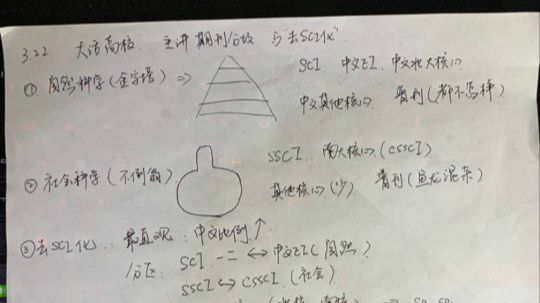 3.22 大话高校. 主讲期刊分级与"去SCI化".
① 自然科学(金字塔) ⇒
SCI. 中文EI. 中文北大核心.
中文其他核心. 普刊(都不怎样)
② 社会科学(不倒翁)
SSCI. 南大核心(CSSCI)
其他核心(少). 普刊(鱼龙混杂)
③ 去SCI化: 最直观: 中文比例↑.
分区: SCI 一二 ↔ 中文EI(自然)
SSCI ↔ CSSCI (社会)